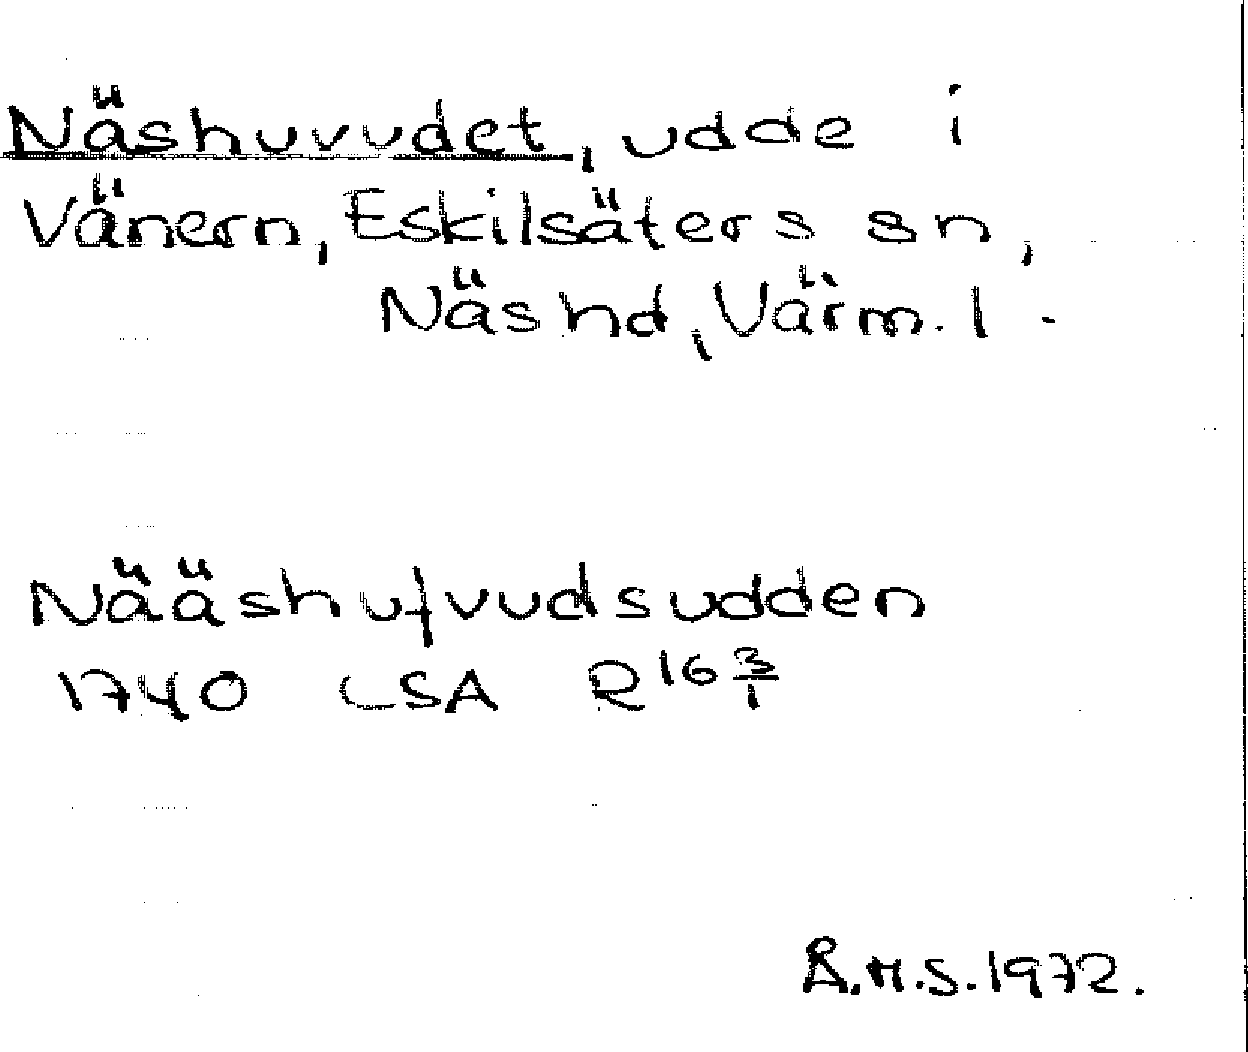 Näshuvudet, udde i
Vänern, Eskilsäters sn,
Näs hd, Värm. l.
Nääshufvudsudden
1740 LSA R16 3/1
Å.H.S. 1972.